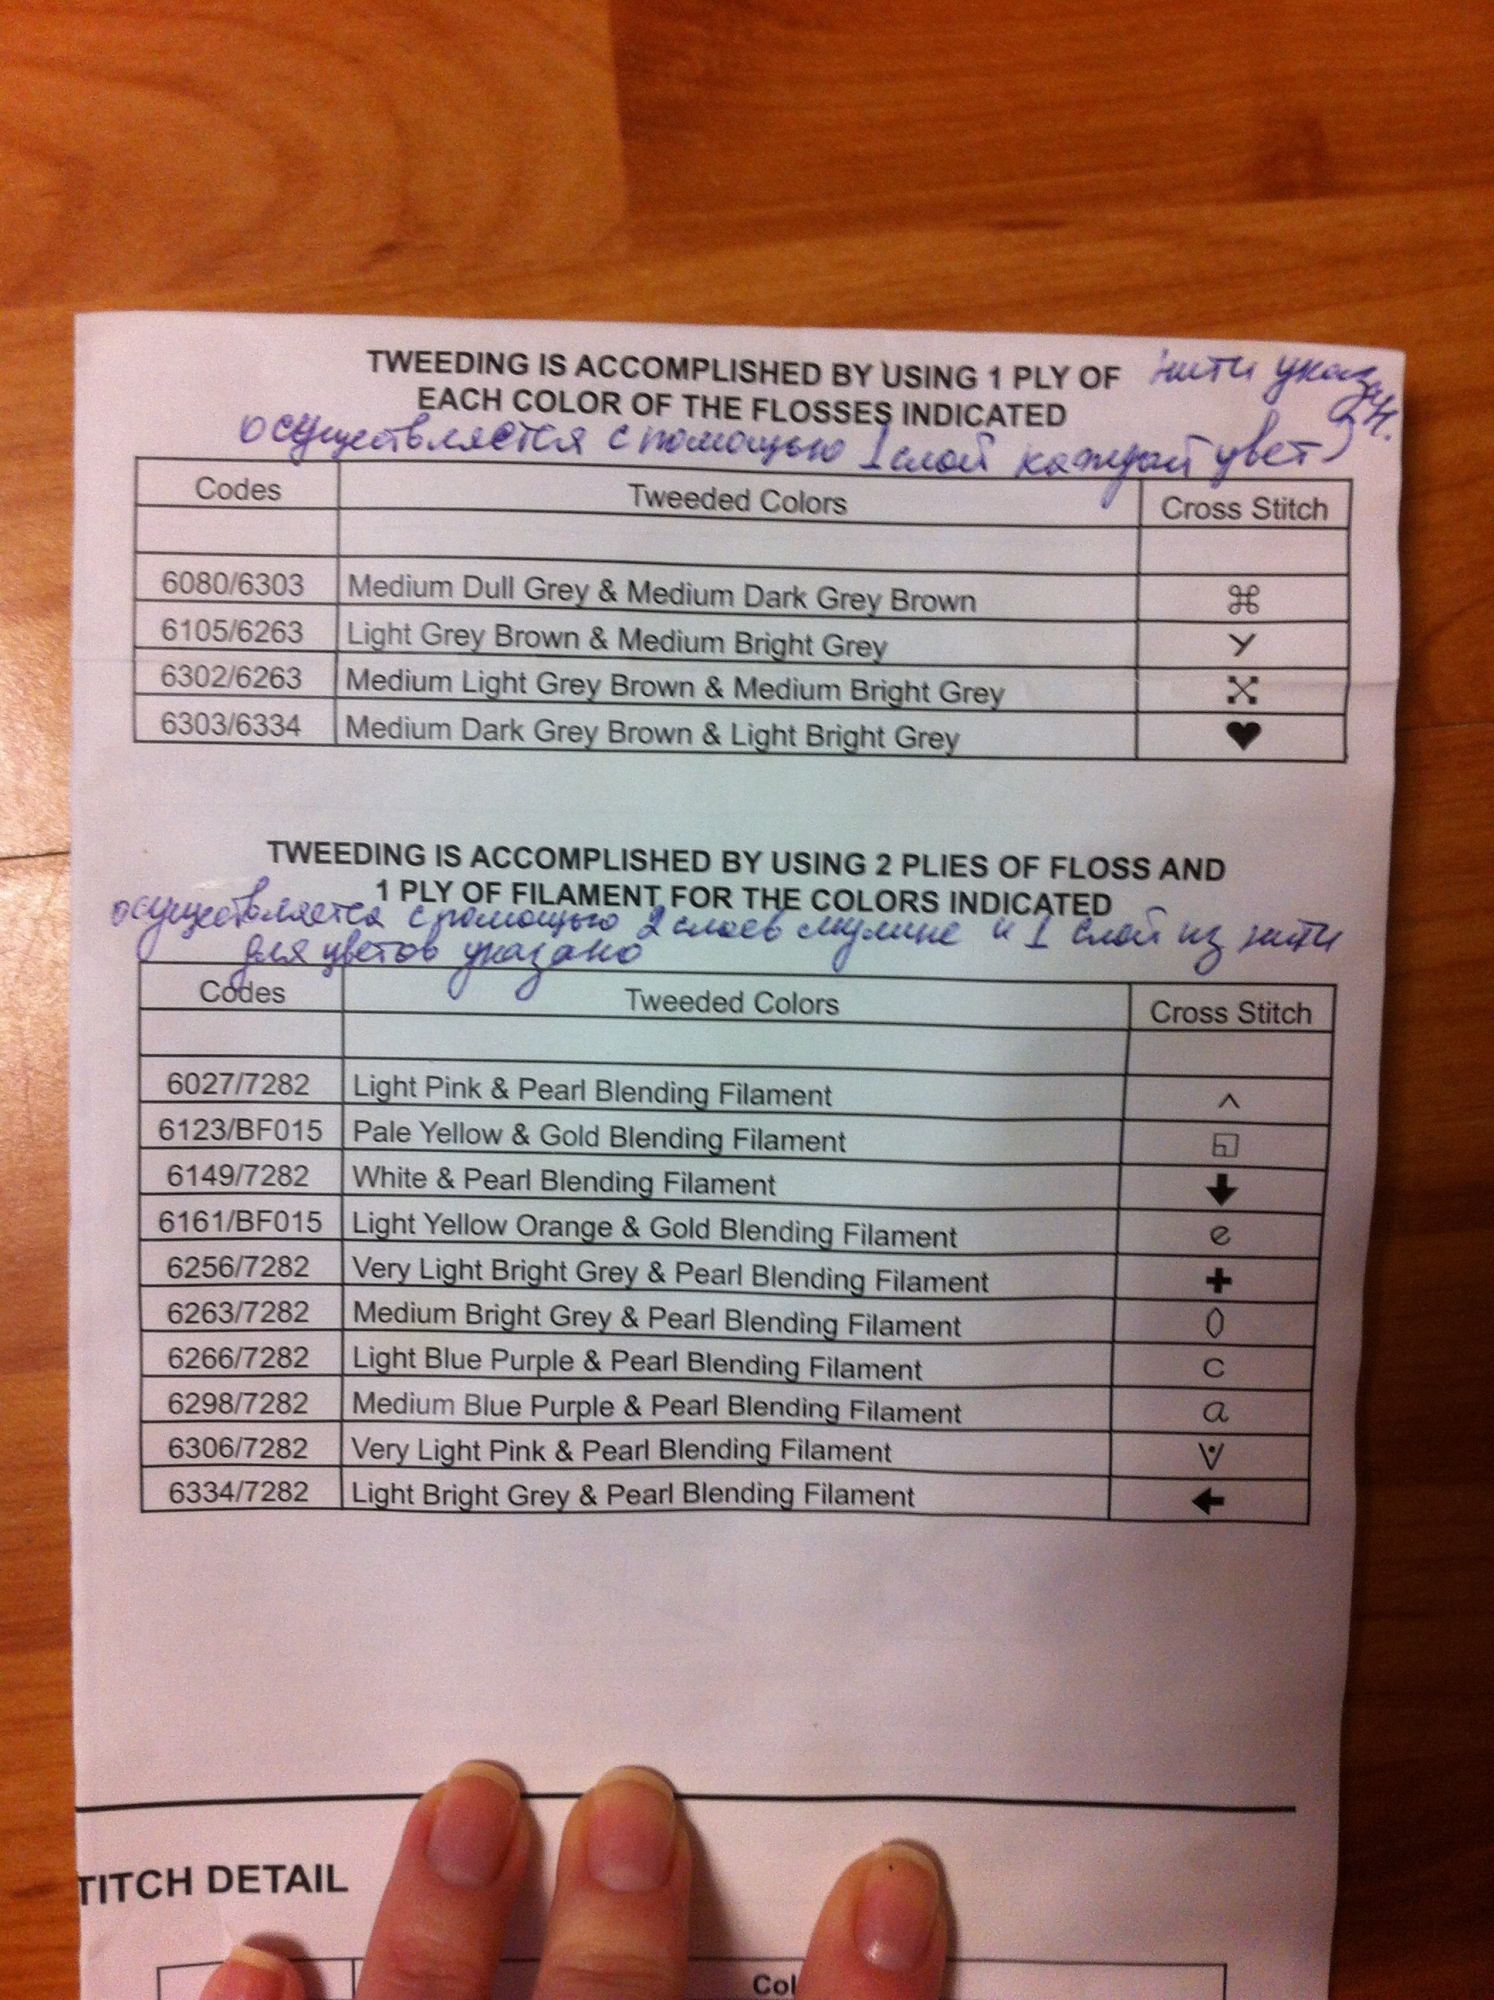 TWEEDING IS ACCOMPLISHED BY USING 1 PLY OF нити указан.
EACH COLOR OF THE FLOSSES INDICATED
осуществляется с помощью 1 слой каждый цвет
Codes Tweeded Colors Cross Stitch
6080/6303 Medium Dull Grey & Medium Dark Grey Brown ⌘
6105/6263 Light Grey Brown & Medium Bright Grey Y
6302/6263 Medium Light Grey Brown & Medium Bright Grey
6303/6334 Medium Dark Grey Brown & Light Bright Grey ♥
TWEEDING IS ACCOMPLISHED BY USING 2 PLIES OF FLOSS AND
1 PLY OF FILAMENT FOR THE COLORS INDICATED
осуществляется с помощью 2 слоев мулине и 1 слой из нити
для цветов указано
Codes Tweeded Colors Cross Stitch
6027/7282 Light Pink & Pearl Blending Filament ^
6123/BF015 Pale Yellow & Gold Blending Filament
6149/7282 White & Pearl Blending Filament ⬇
6161/BF015 Light Yellow Orange & Gold Blending Filament e
6256/7282 Very Light Bright Grey & Pearl Blending Filament ✚
6263/7282 Medium Bright Grey & Pearl Blending Filament 0
6266/7282 Light Blue Purple & Pearl Blending Filament c
6298/7282 Medium Blue Purple & Pearl Blending Filament a
6306/7282 Very Light Pink & Pearl Blending Filament V
6334/7282 Light Bright Grey & Pearl Blending Filament ⬅
TITCH DETAIL
Col